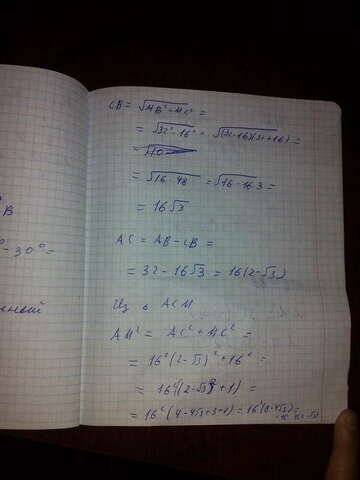 CB = √MB² - MC² =
= √32² - 16² = √(32-16)(32+16) =
= √16 · 48 = √16 · 16 · 3 =
= 16√3
AC = AB - CB =
= 32 - 16√3 = 16(2-√3)
B
- 30° =
Из △ ACM
AM² = AC² + MC² =
= 16²(2-√3)² + 16² =
= 16²((2-√3)² + 1) =
= 16²(4 - 4√3 + 3 + 1) = 16²(8 - 4√3) =